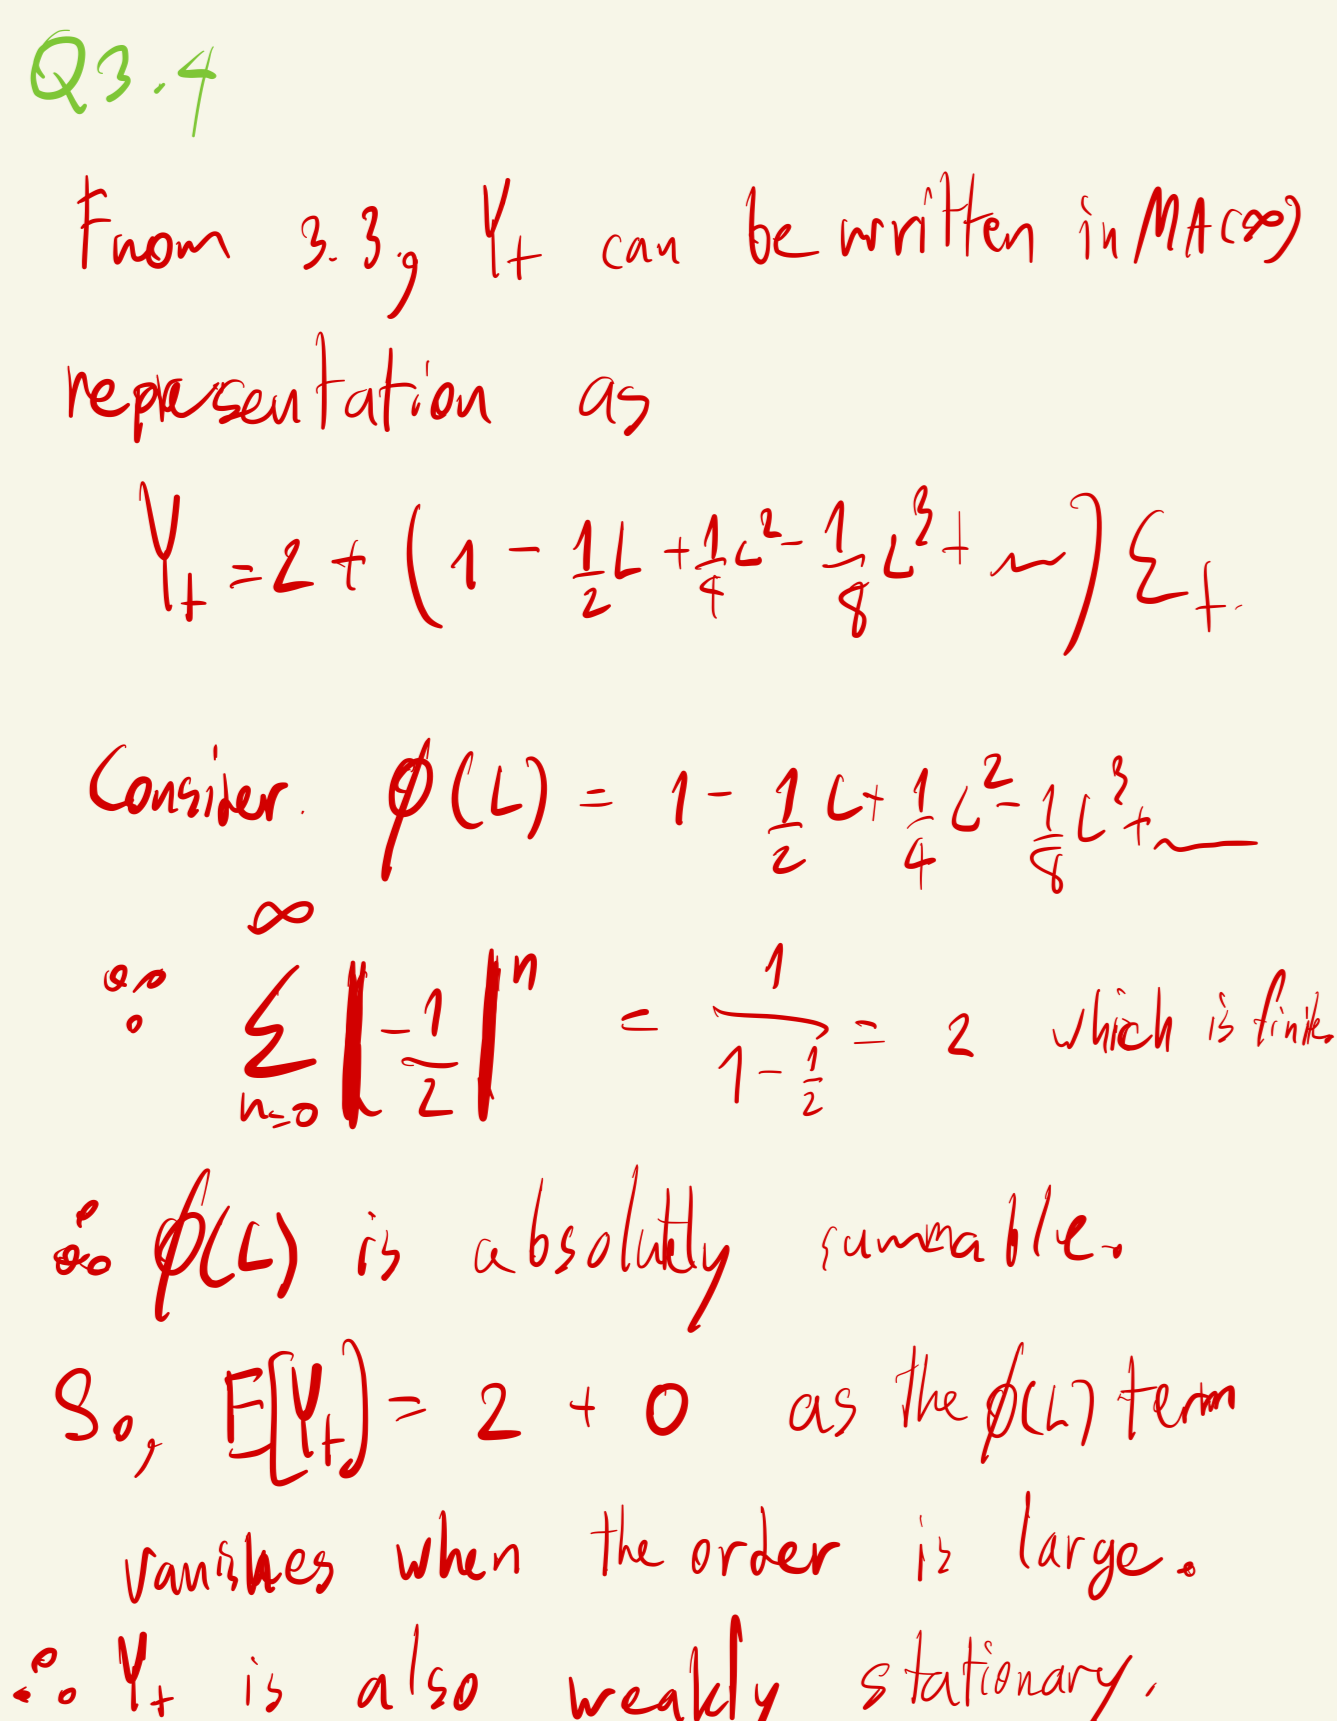 Q3.4
From 3.3, Yₜ can be written in MA(∞)
representation as
Yₜ = 2 + (1 - 1/2 L + 1/4 L² - 1/8 L³ + ...) Σₜ.
Consider. φ(L) = 1 - 1/2 L + 1/4 L² - 1/8 L³ + ...
∵ ∑_{n=0}^{∞} |-1/2|ⁿ = 1/(1 - 1/2) = 2 which is finite.
∴ φ(L) is absolutly summable.
So, E[Yₜ] = 2 + 0 as the φ(L) term
vanishes when the order is large.
∴ Yₜ is also weakly stationary.